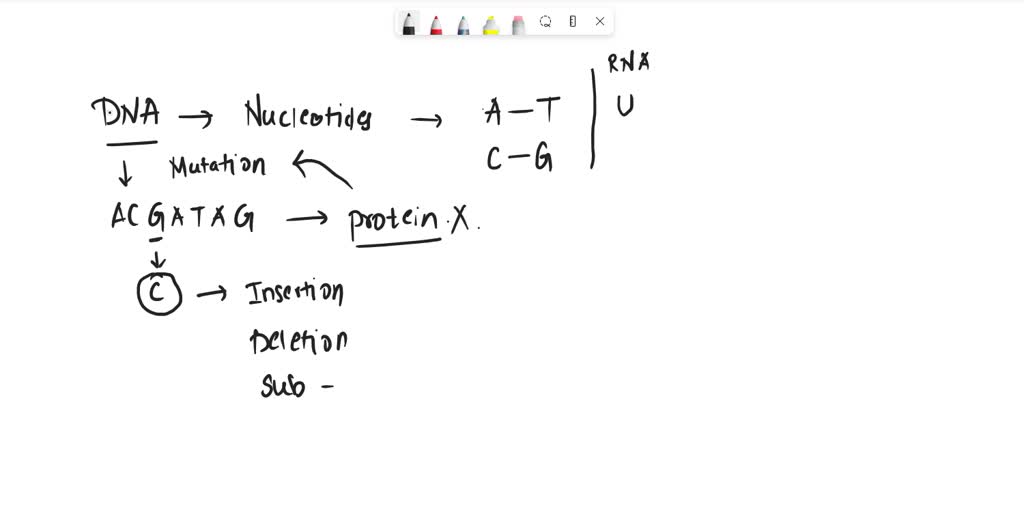 RNA
DNA → Nucleotides → A - T | U
C - G
↓ Mutation
ACGATAG → protein X.
↓
C → Insertion
Deletion
Sub -